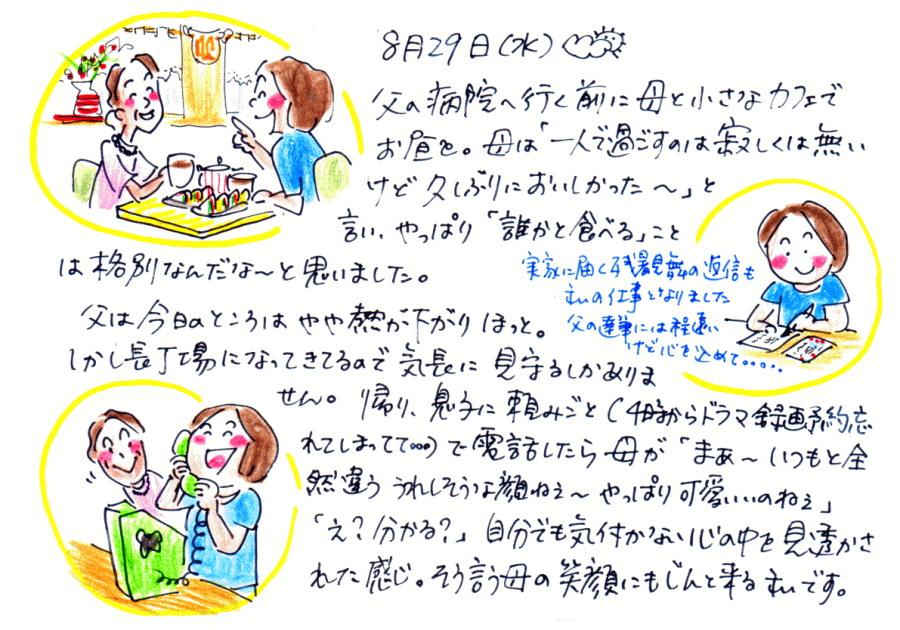 8月29日(水)
父の病院へ行く前に母と小さなカフェで
お昼を。母は「一人で過ごすのは寂しくは無い
けど久しぶりにおいしかった〜」と
言い、やっぱり「誰かと食べる」こと
は格別なんだな〜と思いました。
実家に届く残暑見舞の返信も
私の仕事となりました
父の達筆には程遠い
けど心を込めて・・・・・
父は今日のところは やや熱が下がり ほっと。
しかし長丁場になってきてるので 気長に 見守るしかありま
せん。帰り、息子に頼みごと(4時からドラマ録画予約忘
れてしまってて・・・)で電話したら母が「まぁ〜いつもと全
然違う うれしそうな顔ねぇ〜やっぱり可愛いいのねぇ」
「え?分かる?」自分でも気付かない心の中を見透かさ
れた感じ。そう言う母の笑顔にもじんと来る私です。